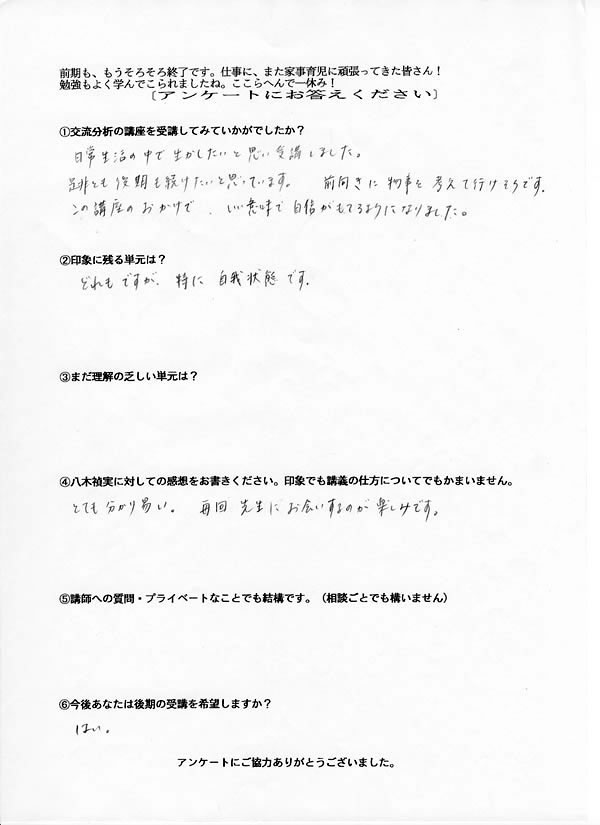 前期も、もうそろそろ終了です。仕事に、また家事育児に頑張ってきた皆さん！
勉強もよく学んでこられましたね。ここらへんで一休み！
［アンケートにお答えください］
①交流分析の講座を受講してみていかがでしたか？
日常生活の中で生かしたいと思い受講しました。
是非とも後期も続けたいと思っています。 前向きに物事を考えて行けそうです。
この講座のおかげで、いい意味で自信がもてるようになりました。
②印象に残る単元は？
どれもですが、特に自我状態です。
③まだ理解の乏しい単元は？
④八木禎実に対しての感想をお書きください。印象でも講義の仕方についてでもかまいません。
とても分かり易い。 毎回先生にお会いするのが楽しみです。
⑤講師への質問・プライベートなことでも結構です。（相談ごとでも構いません）
⑥今後あなたは後期の受講を希望しますか？
はい。
アンケートにご協力ありがとうございました。